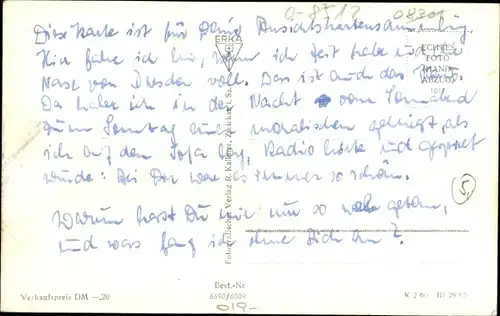 O-8717 08301
Diese Karte ist für Deine Ansichtskartensammlung.
Hier fahre ich hin, wenn ich Zeit habe und die
Nase von Dresden voll. Das ist auch das
Da habe ich in der Nacht vom Sonnabend
zum Sonntag und moralischen gehegt, als
ich auf dem Sofa lag, Radio hörte und
wurde: Bei Dir war es immer so schön.
Warum hast Du mir nur so weh getan,
und was fang ich ohne Dich an?
ERKA
ECHTES
FOTO
HAND
ABZUG
Fotografischer Verlag R. Kallmer, Zwickau i. Sa.
5.
Verkaufspreis DM —,20
Best.-Nr
6690/6009
019-
K 2/60 III 29 C5